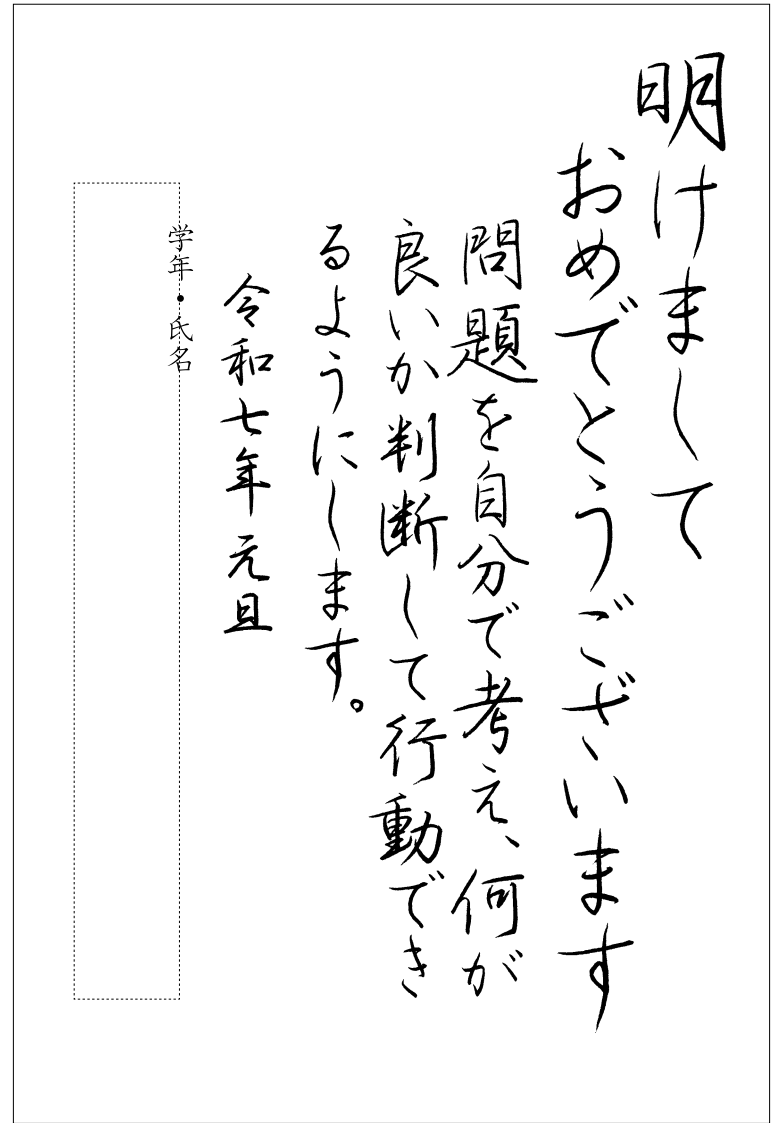 明けまして
おめでとうございます
問題を自分で考え、何が
良いか判断して行動でき
るようにします。
令和七年元旦
学年・氏名